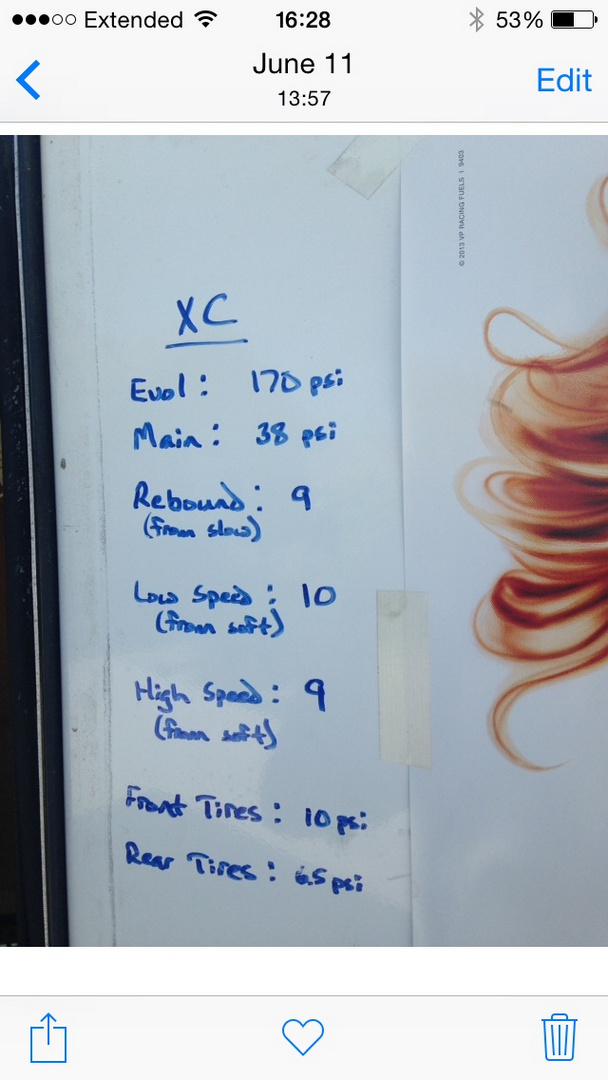 Extended 16:28 53%
June 11
13:57
Edit
© 2013 VP RACING FUELS | 9403
XC
Evol: 170 psi
Main: 38 psi
Rebound: 9
(from slow)
Low Speed: 10
(from soft)
High Speed: 9
(from soft)
Front Tires: 10 psi
Rear Tires: 6.5 psi